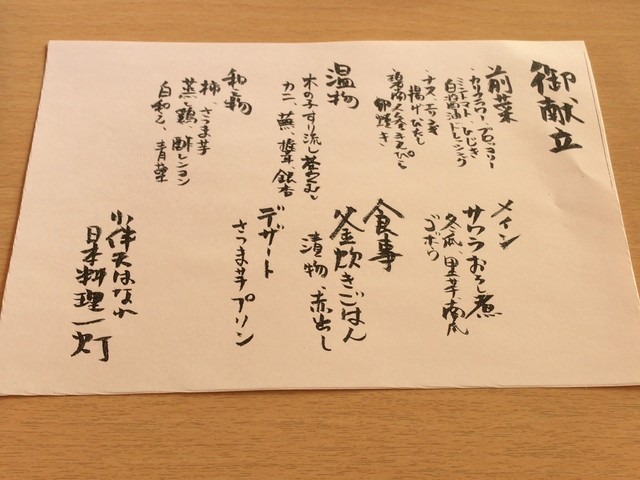 御献立
前菜
カリフラワー、ブロッコリー
ミニトマト、ひじき
白醤油ドレッシング
ナス、エリンギ
揚げびたし
鶏肉人参きんぴら
卵焼き
温物
木の子すり流し茶わんむし
カニ、蕪、椎茸、銀杏
和え物
柿、さつま芋
蒸し鶏、酢レンコン
白和え、青菜
メイン
サワラおろし煮
冬瓜、里芋、南瓜
ゴボウ
食事
釜炊きごはん
漬物、赤出し
デザート
さつま芋プリン
小伴天はなれ
日本料理一灯